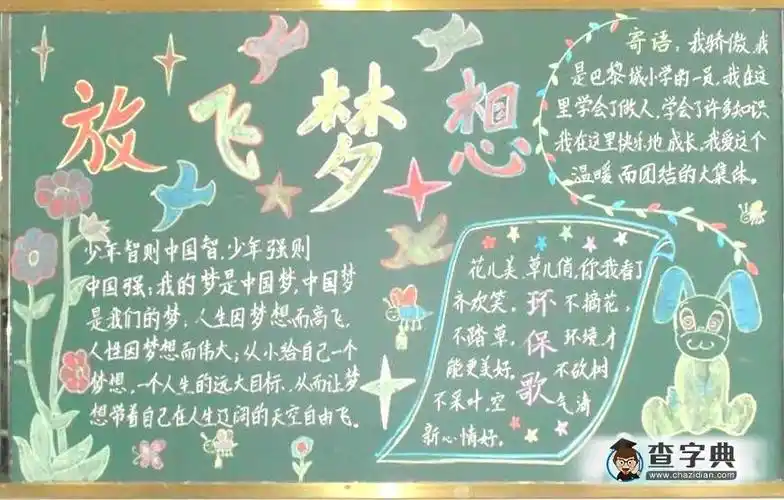 放飞梦想
寄语：我骄傲，我
是巴黎城小学的一员，我在这
里学会了做人，学会了许多知识
我在这里快乐地成长，我爱这个
温暖而团结的大集体。
少年智则中国智，少年强则
中国强；我的梦是中国梦，中国梦
是我们的梦，人生因梦想而高飞，
人性因梦想而伟大；从小给自己一个
梦想，一个人生的远大目标，从而让梦
想带着自己在人生辽阔的天空自由飞。
环保歌
花儿美，草儿俏，你我看了
齐欢笑。不摘花，
不踏草，环境才
能更美好。不砍树
不采叶，空气清
新心情好。
查字典
www.chazidian.com